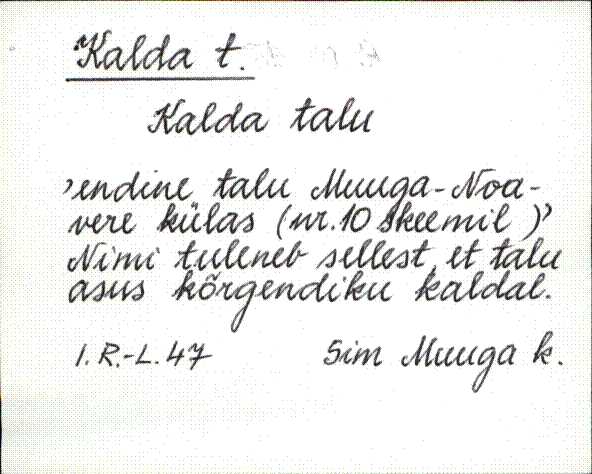 Kalda t.
Kalda talu
’endine talu Muuga-Noa-
vere külas (nr.10 skeemil)’
Nimi tuleneb sellest, et talu
asus kõrgendiku kaldal.
I. R.-L. 47 Sim Muuga k.